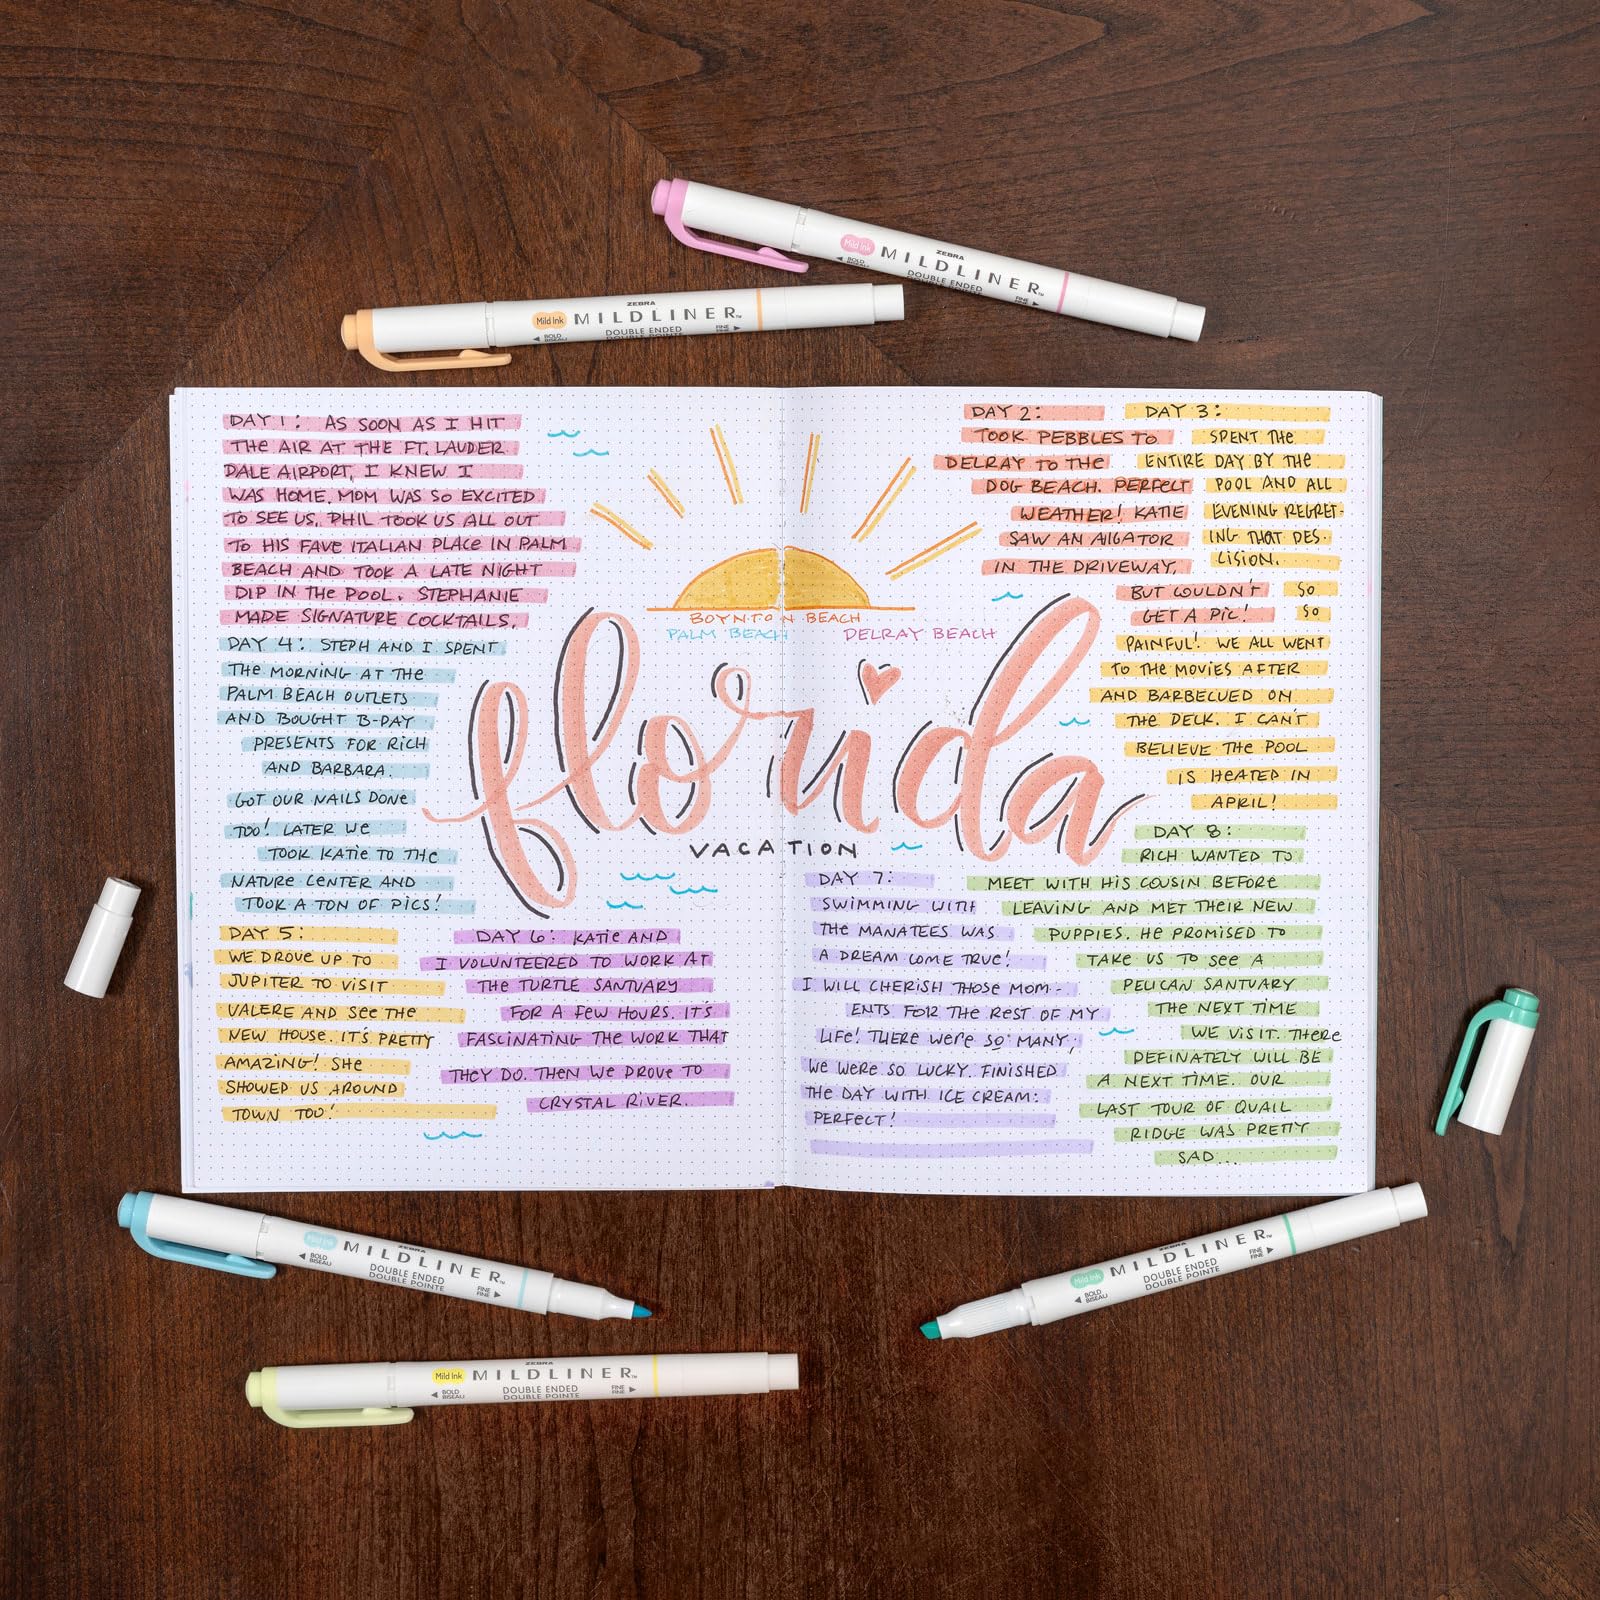 ZEBRA
Mild Ink MILDLINER™
BOLD BISEAU DOUBLE ENDED FINE
ZEBRA
Mild Ink MILDLINER™
BOLD BISEAU DOUBLE ENDED DOUBLE POINTE FINE FINE
DAY 1: AS SOON AS I HIT
THE AIR AT THE FT. LAUDER
DALE AIRPORT, I KNEW I
WAS HOME. MOM WAS SO EXCITED
TO SEE US. PHIL TOOK US ALL OUT
TO HIS FAVE ITALIAN PLACE IN PALM
BEACH AND TOOK A LATE NIGHT
DIP IN THE POOL. STEPHANIE
MADE SIGNATURE COCKTAILS.
DAY 2:
TOOK PEBBLES TO
DELRAY TO THE
DOG BEACH. PERFECT
WEATHER! KATIE
SAW AN AlIGATOR
IN THE DRIVEWAY,
BUT COULDN'T
GET A PIC!
DAY 3:
SPENT THE
ENTIRE DAY BY THE
POOL AND ALL
EVENING REGRET-
ING THAT DES-
CISION.
SO
SO
PAINFUL! WE ALL WENT
TO THE MOVIES AFTER
AND BARBECUED ON
THE DECK. I CAN'T
BELIEVE THE POOL
IS HEATED IN
APRIL!
BOYNTON BEACH
PALM BEACH DELRAY BEACH
florida
VACATION
DAY 4: STEPH AND I SPENT
THE MORNING AT THE
PALM BEACH OUTLETS
AND BOUGHT B-DAY
PRESENTS FOR RICH
AND BARBARA.
GOT OUR NAILS DONE
TOO! LATER WE
TOOK KATIE TO THE
NATURE CENTER AND
TOOK A TON OF PICS!
DAY 5:
WE DROVE UP TO
JUPITER TO VISIT
VALERE AND SEE THE
NEW HOUSE. IT'S PRETTY
AMAZING! SHE
SHOWED US AROUND
TOWN TOO!
DAY 6: KATIE AND
I VOLUNTEERED TO WORK AT
THE TURTLE SANTUARY
FOR A FEW HOURS. IT'S
FASCINATING THE WORK THAT
THEY DO. THEN WE DROVE TO
CRYSTAL RIVER.
DAY 7:
SWIMMING WITH
THE MANATEES WAS
A DREAM COME TRUE!
I WILL CHERISH THOSE MOM-
ENTS FOR THE REST OF MY
LIFE! THERE WERE SO MANY;
WE WERE SO LUCKY. FINISHED
THE DAY WITH ICE CREAM:
PERFECT!
DAY 8:
RICH WANTED TO
MEET WITH HIS COUSIN BEFORE
LEAVING AND MET THEIR NEW
PUPPIES. HE PROMISED TO
TAKE US TO SEE A
PELICAN SANTUARY
THE NEXT TIME
WE VISIT. THERE
DEFINATELY WILL BE
A NEXT TIME. OUR
LAST TOUR OF QUAIL
RIDGE WAS PRETTY
SAD...
ZEBRA
Mild Ink MILDLINER™
BOLD BISEAU DOUBLE ENDED DOUBLE POINTE FINE FINE
ZEBRA
Mild Ink MILDLINER™
BOLD BISEAU DOUBLE ENDED DOUBLE POINTE FINE FINE
ZEBRA
Mild Ink MILDLINER™
BOLD BISEAU DOUBLE ENDED DOUBLE POINTE FINE FINE